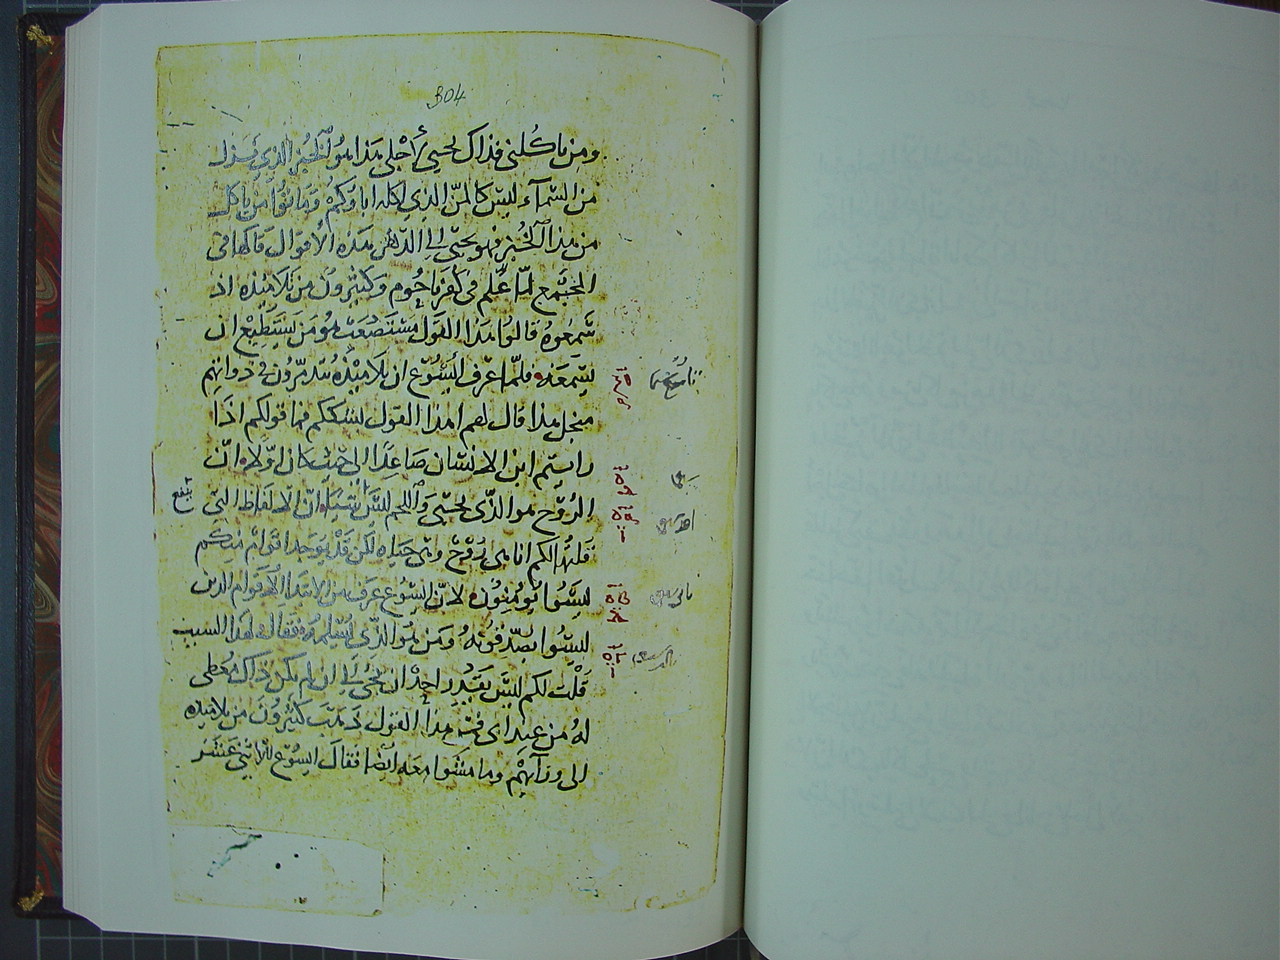 304
ومن ياكلني فذاك يحيى أجلي هذا هو الخبز الذي نزل
من السمآء ليس كالمنّ الذي اكله اباوكم وماتوا من ياكل
من هذا الخبز فهو يحيى الى الدهر هذه الاقوال قالها في
المجتمع لمّا علّم في كفرناحوم وكثيرون من تلاميذه اذ
سمعوه قالوا هذا القول مستصعب هو من يستطيع ان
يسمعه فلمّا عرف ايسُوع ان تلاميذه يتدمّرون في ذواتهم
منجل هذا قال لهم اهذا القول يشككم فما قولكم اذا
رايتم ابن الانسان صاعدا الى حيث كان اوّلا انّ
الروح هو الذي يحيي واللحم ليس شيا ان الالفاظ التي
قلتها لكم انا هي روح وهي حياه لكن قد يوجد اقوام منكم
ليسوا يومنون لانّ ايسوع عرف من الابتدا الاقوام الذين
ليسوا يصدقونه ومن هو الذي يسلمه فقال لهذا السبب
قلت لكم ليس يقدر احد ان يجي الي ان لم يكن ذاك معطى
له من عند ابي فمن هذا القول ذهب كثيرون من تلاميذه
الى ورآيهم وما مشوا معه ايضا فقال ايسوع للاثني عشر